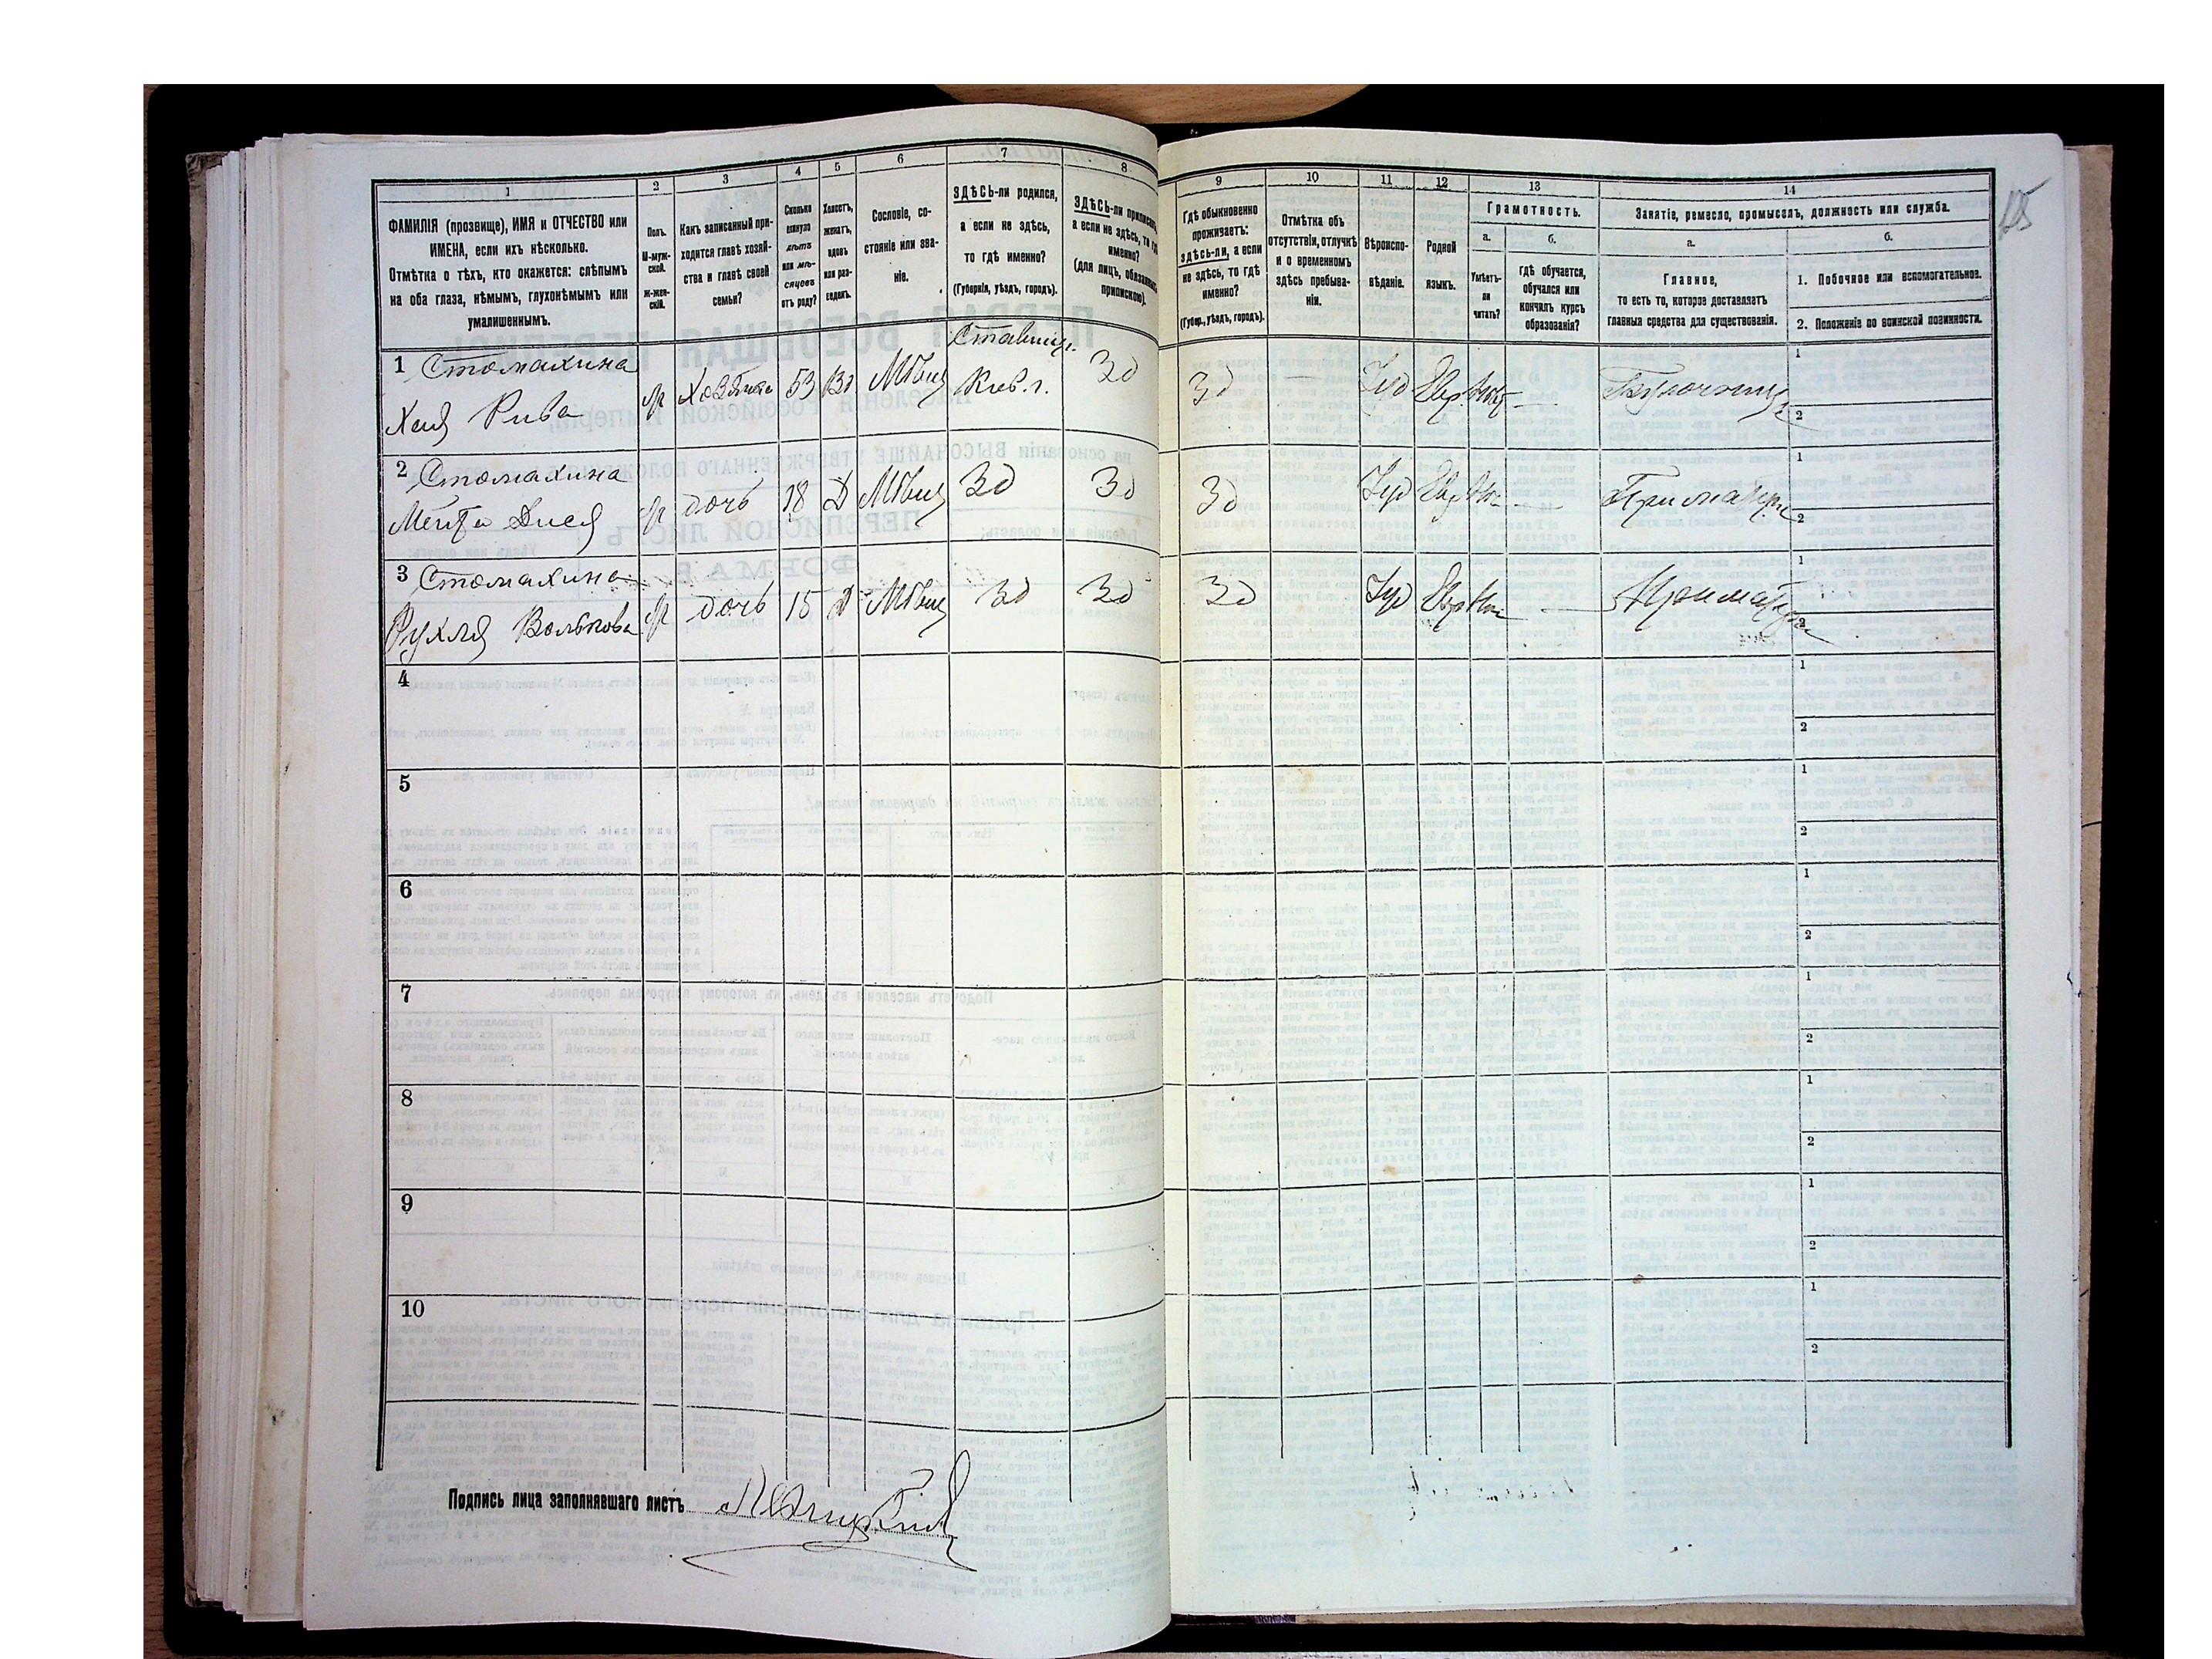 1
2
3
4
5
6
7
8
ФАМИЛІЯ (прозвище), ИМЯ и ОТЧЕСТВО или
ИМЕНА, если ихъ нѣсколько.
Отмѣтка о тѣхъ, кто окажется: слѣпымъ
на оба глаза, нѣмымъ, глухонѣмымъ или
умалишеннымъ.
Полъ.
М-муж-
ской.
Ж-жен-
скій.
Какъ записанный при-
ходится главѣ хозяй-
ства и главѣ своей
семьи?
Сколько
минуло
лѣтъ
или мѣ-
сяцевъ
отъ роду?
Холостъ,
женатъ,
вдовъ
или раз-
веденъ.
Сословіе, со-
стояніе или зва-
ніе.
ЗДѢСЬ-ли родился,
а если не здѣсь,
то гдѣ именно?
(Губернія, уѣздъ, городъ).
ЗДѢСЬ-ли приписанъ,
а если не здѣсь, то гдѣ
именно?
(для лицъ, обязанныхъ
припискою).
1 Стомахина
Хая Рива
Хозяйка 53 Вд Мѣщ
Ставищ.
Кіев. г.
Зд
2 Стомахина
дочь 18 Д Мѣщ Зд Зд
3 Стомахина
Рухля Волькова
дочь 15 Д Мѣщ Зд Зд
4
5
6
7
8
9
10
Подпись лица заполнявшаго листъ
9
10
11
12
13
14
Гдѣ обыкновенно
проживаетъ:
здѣсь-ли, а если
не здѣсь, то гдѣ
именно?
(Губер., уѣздъ, городъ).
Отмѣтка объ
отсутствіи, отлучкѣ
и о временномъ
здѣсь пребыва-
ніи.
Вѣроиспо-
вѣданіе.
Родной
языкъ.
Грамотность.
а.
Умѣетъ-
ли
читать?
б.
гдѣ обучается,
обучался или
кончилъ курсъ
образованія?
Занятіе, ремесло, промыселъ, должность или служба.
а.
Главное,
то есть то, которое доставляетъ
главныя средства для существованія.
б.
1. Побочное или вспомогательное.
2. Положеніе по воинской повинности.
Зд — Іуд Евр Нѣт —
1
2
Зд Іуд Евр Нѣт — При матери
1
2
Зд Іуд Евр Нѣт — При матери
1
2
1
2
1
2
1
2
1
2
1
2
1
2
1
2